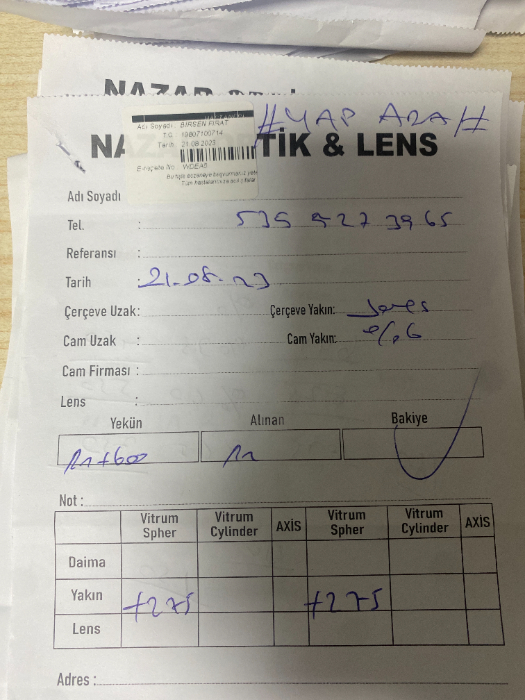 NAZAR
#YAP ARA#
Adı Soyadı: BİRSEN FIRAT
T.C. 19807100714
Tarih: 21.08.2023
E-reçete No:
TİK & LENS
NA
Adı Soyadı
Tel. : 535 927 3965
Referansı :
Tarih : 21.08.23
Çerçeve Uzak: Çerçeve Yakın:
Cam Uzak : Cam Yakın:
Cam Firması :
Lens :
Yekün Alınan Bakiye
Not :
Vitrum Spher Vitrum Cylinder AXİS Vitrum Spher Vitrum Cylinder AXİS
Daima
Yakın +275 +275
Lens
Adres :